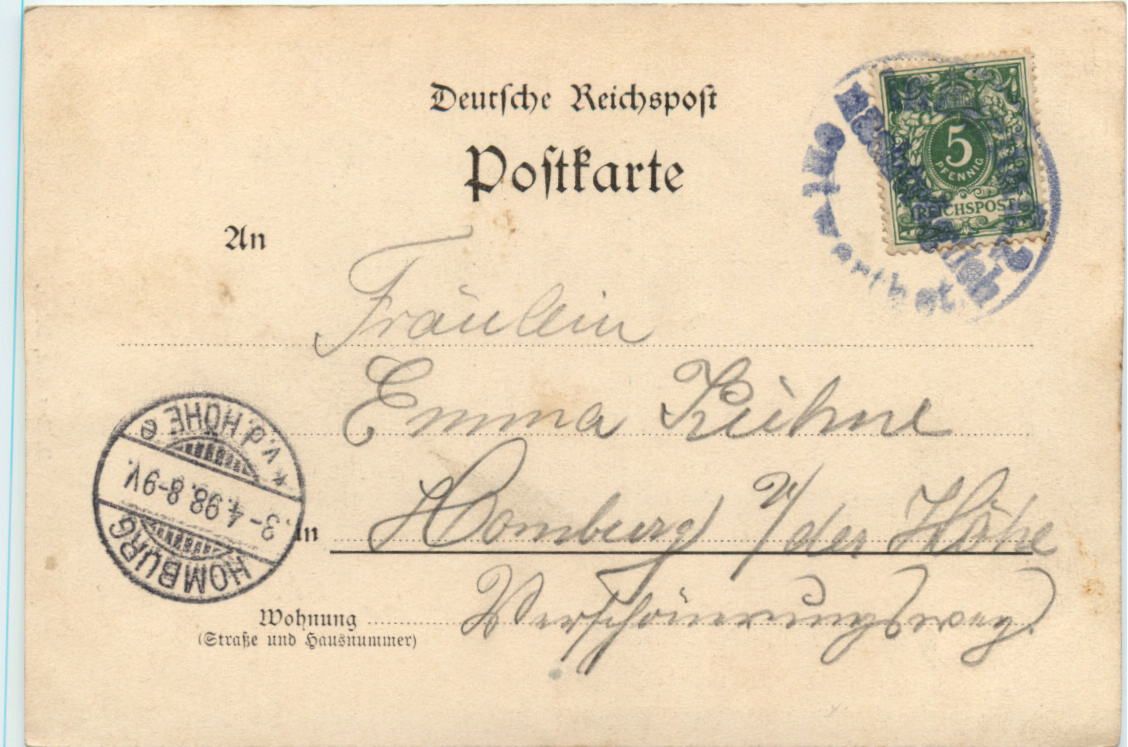 Deutsche Reichspost
Postkarte
5
PFENNIG
REICHSPOST
An
Fräulein
Emma Kühne
in Homburg v/der Höhe
Wohnung Verschönerungsweg.
(Straße und Hausnummer)
HOMBURG
3-4.98.8-9V.
* v.d.HÖHE e